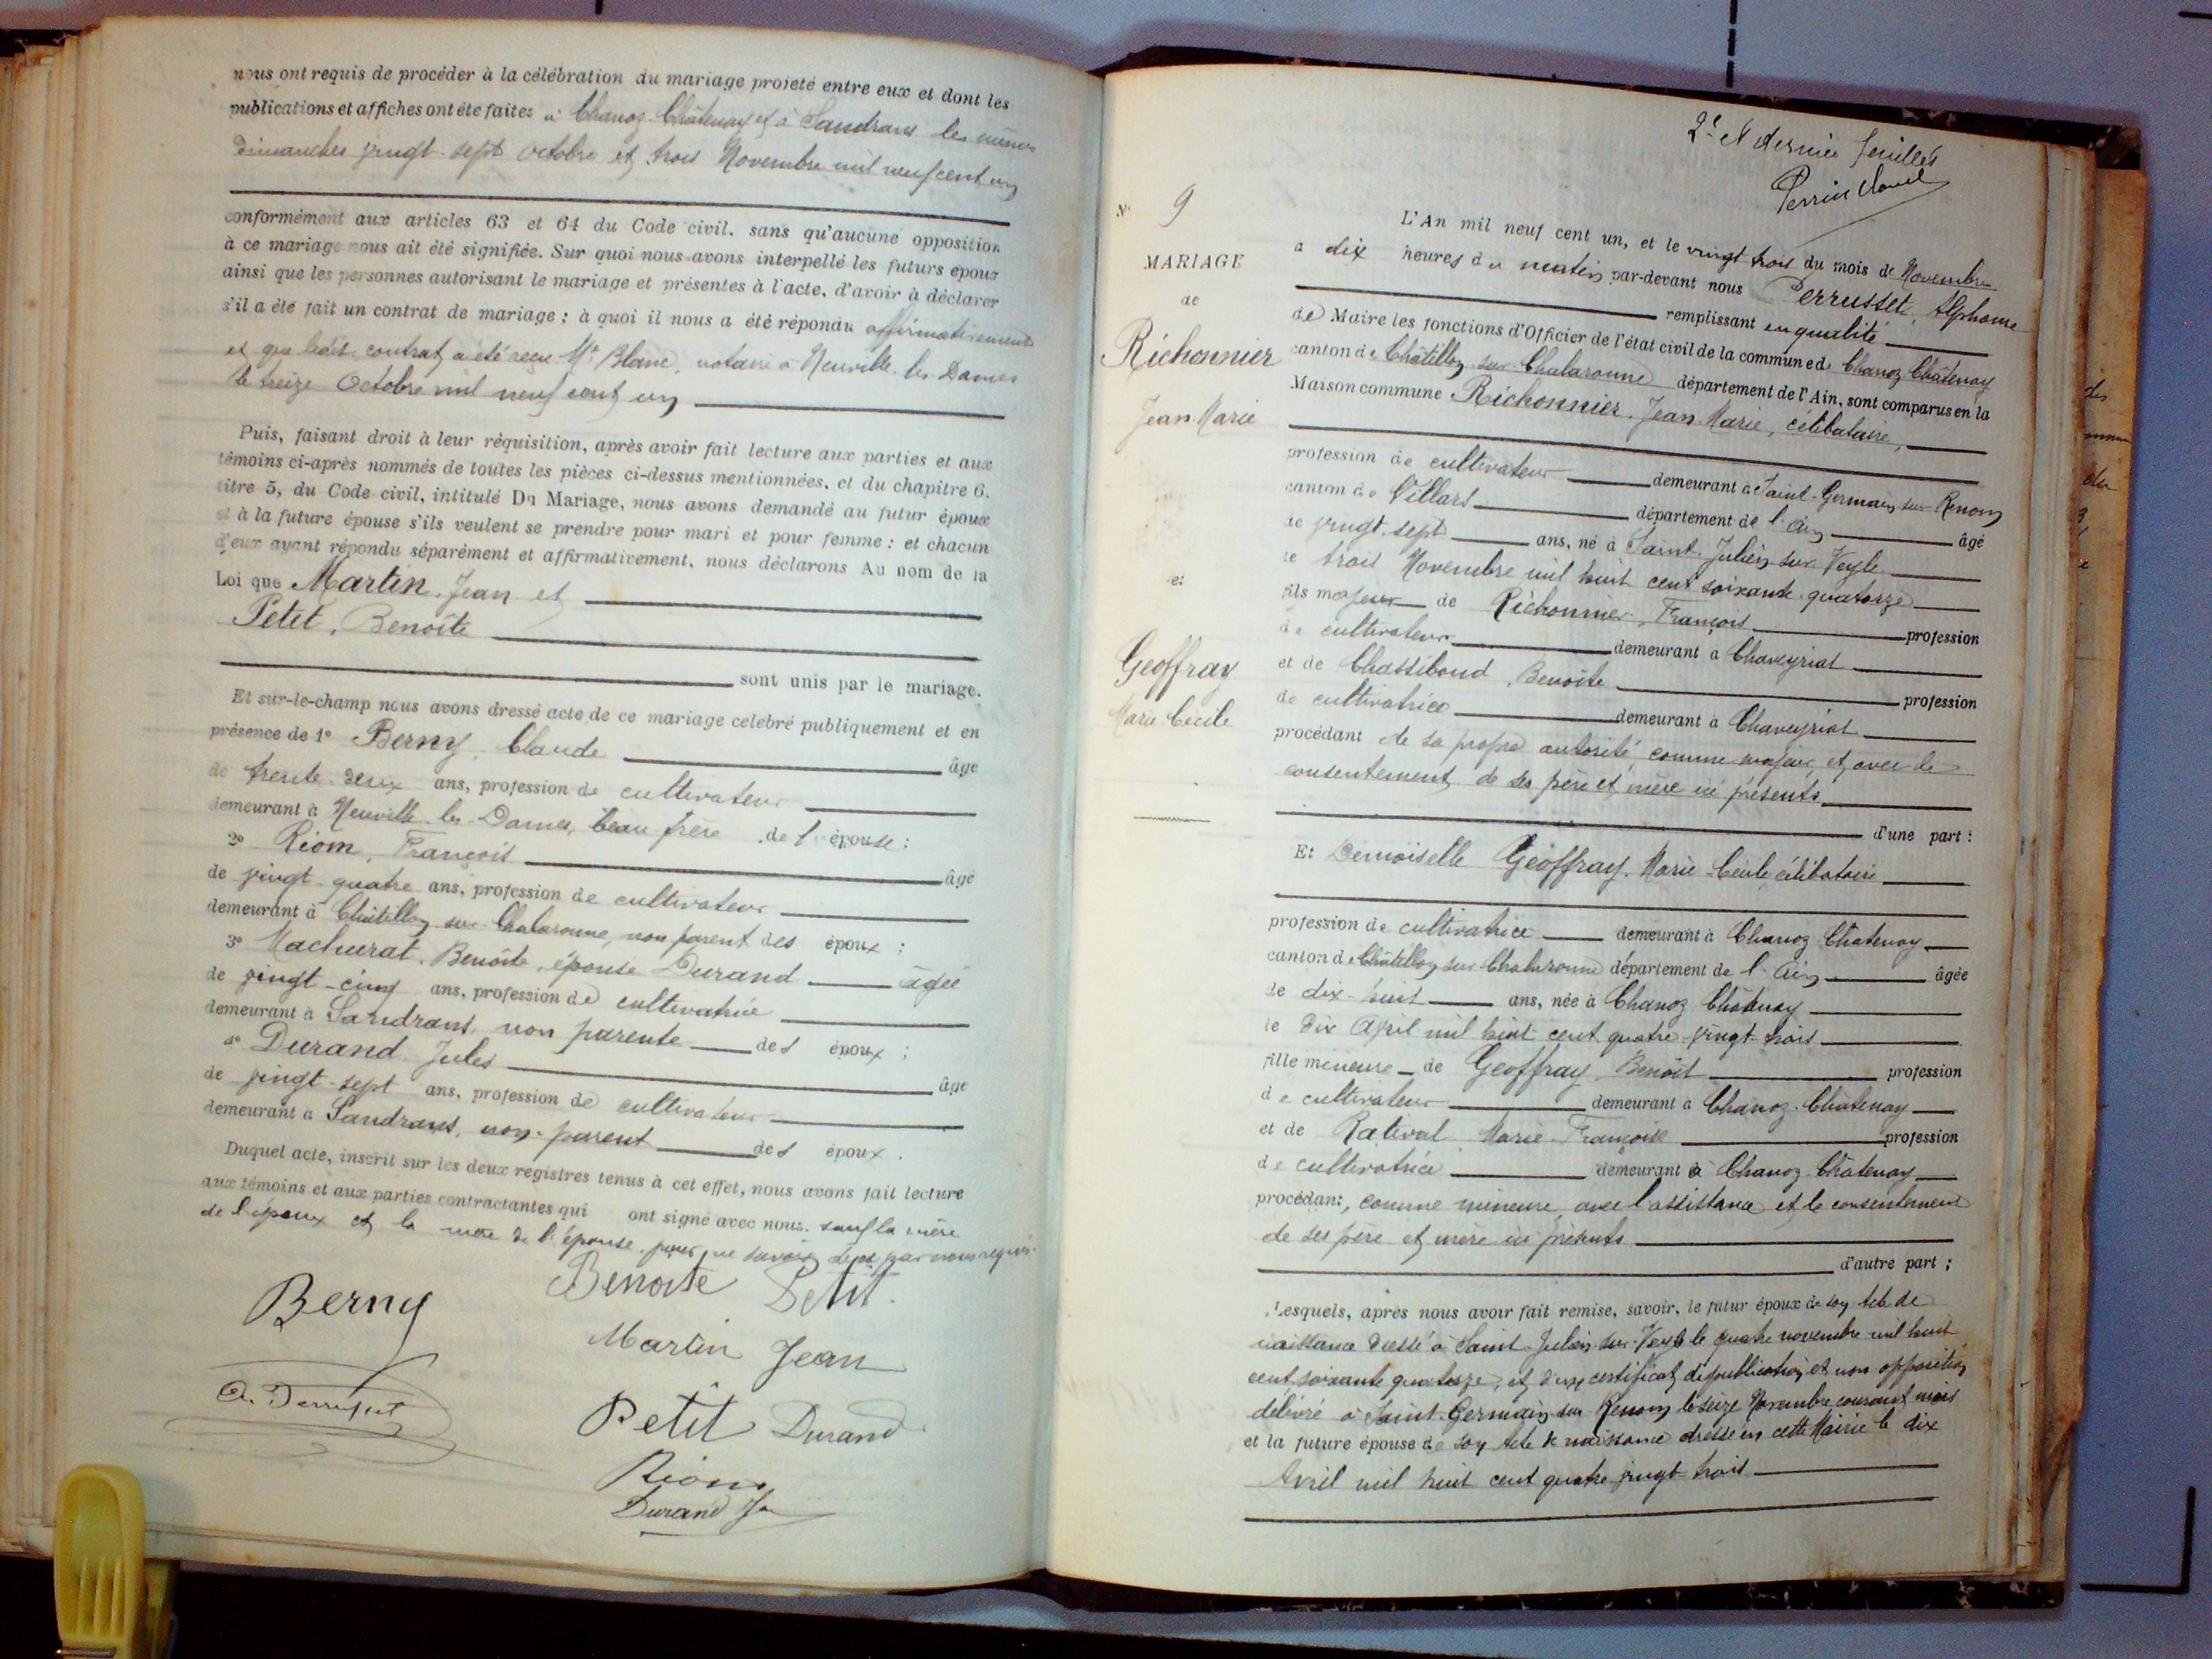 nous ont requis de procéder à la célébration du mariage projeté entre eux et dont les
publications et affiches ont été faites à Chanoz-Châtenay et à Sandrans les mêmes
dimanches vingt-sept octobre et trois Novembre mil neuf cent un
conformément aux articles 63 et 64 du Code civil, sans qu'aucune opposition
à ce mariage nous ait été signifiée. Sur quoi nous avons interpellé les futurs époux
ainsi que les personnes autorisant le mariage et présentes à l'acte, d'avoir à déclarer
s'il a été fait un contrat de mariage ; à quoi il nous a été répondu affirmativement
et que contrat a été reçu Me Blanc, notaire à Neuville-les-Dames
le treize Octobre mil neuf cent un
Puis, faisant droit à leur réquisition, après avoir fait lecture aux parties et aux
témoins ci-après nommés de toutes les pièces ci-dessus mentionnées, et du chapitre 6,
titre 5, du Code civil, intitulé Du Mariage, nous avons demandé au futur époux
et à la future épouse s'ils veulent se prendre pour mari et pour femme : et chacun
d'eux ayant répondu séparément et affirmativement, nous déclarons Au nom de la
Loi que Martin, Jean et
Petit, Benoîte
sont unis par le mariage.
Et sur-le-champ nous avons dressé acte de ce mariage célébré publiquement et en
présence de 1° Berny, Claude âgé
de trente-deux ans, profession de cultivateur
demeurant à Neuville-les-Dames, beau-frère de l'épouse ;
2° Riom, François âgé
de vingt-quatre ans, profession de cultivateur
demeurant à Châtillon-sur-Chalaronne, non parent des époux ;
3° Machurat, Benoîte, épouse Durand âgée
de vingt-cinq ans, profession de cultivatrice
demeurant à Sandrans, non parente des époux ;
4° Durand, Jules âgé
de vingt-sept ans, profession de cultivateur
demeurant à Sandrans, non-parent des époux.
Duquel acte, inscrit sur les deux registres tenus à cet effet, nous avons fait lecture
aux témoins et aux parties contractantes qui ont signé avec nous. sauf la mère
de l'époux et la mère de l'épouse, pour ne savoir de ce par nous requis.
Berny Benoite Petit
Martin Jean
Petit Durand
Riom
Durand
2e et dernier feuillet
Perrin
N° 9
MARIAGE
de
Richonnier
Jean-Marie
et
Geoffray
Marie Cécile
L'An mil neuf cent un, et le vingt trois du mois de Novembre
a dix heures du matin par-devant nous Perrusset, Alphonse
remplissant en qualité
de Maire les fonctions d'Officier de l'état civil de la commune de Chanoz-Châtenay
canton de Châtillon-sur-Chalaronne département de l'Ain, sont comparus en la
Maison commune Richonnier, Jean-Marie, célibataire,
profession de cultivateur demeurant à Saint-Germain-sur-Renom
canton de Villars département de l'Ain âgé
de vingt-sept ans, né à Saint-Julien-sur-Veyle
le trois Novembre mil huit cent soixante-quatorze
fils majeur de Richonnier, François profession
de cultivateur demeurant à Chaveyriat
et de Chassiboud, Benoîte profession
de cultivatrice demeurant à Chaveyriat
procédant de sa propre autorité comme majeur et avec le
consentement de ses père et mère ici présents
d'une part :
Et Demoiselle Geoffray, Marie-Cécile, célibataire
profession de cultivatrice demeurant à Chanoz-Châtenay
canton de Châtillon-sur-Chalaronne département de l'Ain âgée
de dix-huit ans, née à Chanoz-Châtenay
le dix Avril mil huit cent quatre-vingt-trois
fille mineure de Geoffray, Benoît profession
de cultivateur demeurant à Chanoz-Châtenay
et de Rativat, Marie-Françoise profession
de cultivatrice demeurant à Chanoz-Châtenay
procédant, comme mineure, avec l'assistance et le consentement
de ses père et mère ici présents
d'autre part ;
Lesquels, après nous avoir fait remise, savoir, le futur époux de son acte de
naissance dressé à Saint-Julien-sur-Veyle le quatre novembre mil huit
cent soixante quatorze, et d'un certificat de publication et non opposition
délivré à Saint-Germain-sur-Renom le seize Novembre courant mois
et la future épouse de son Acte de naissance dressé en cette Mairie le dix
Avril mil huit cent quatre-vingt-trois